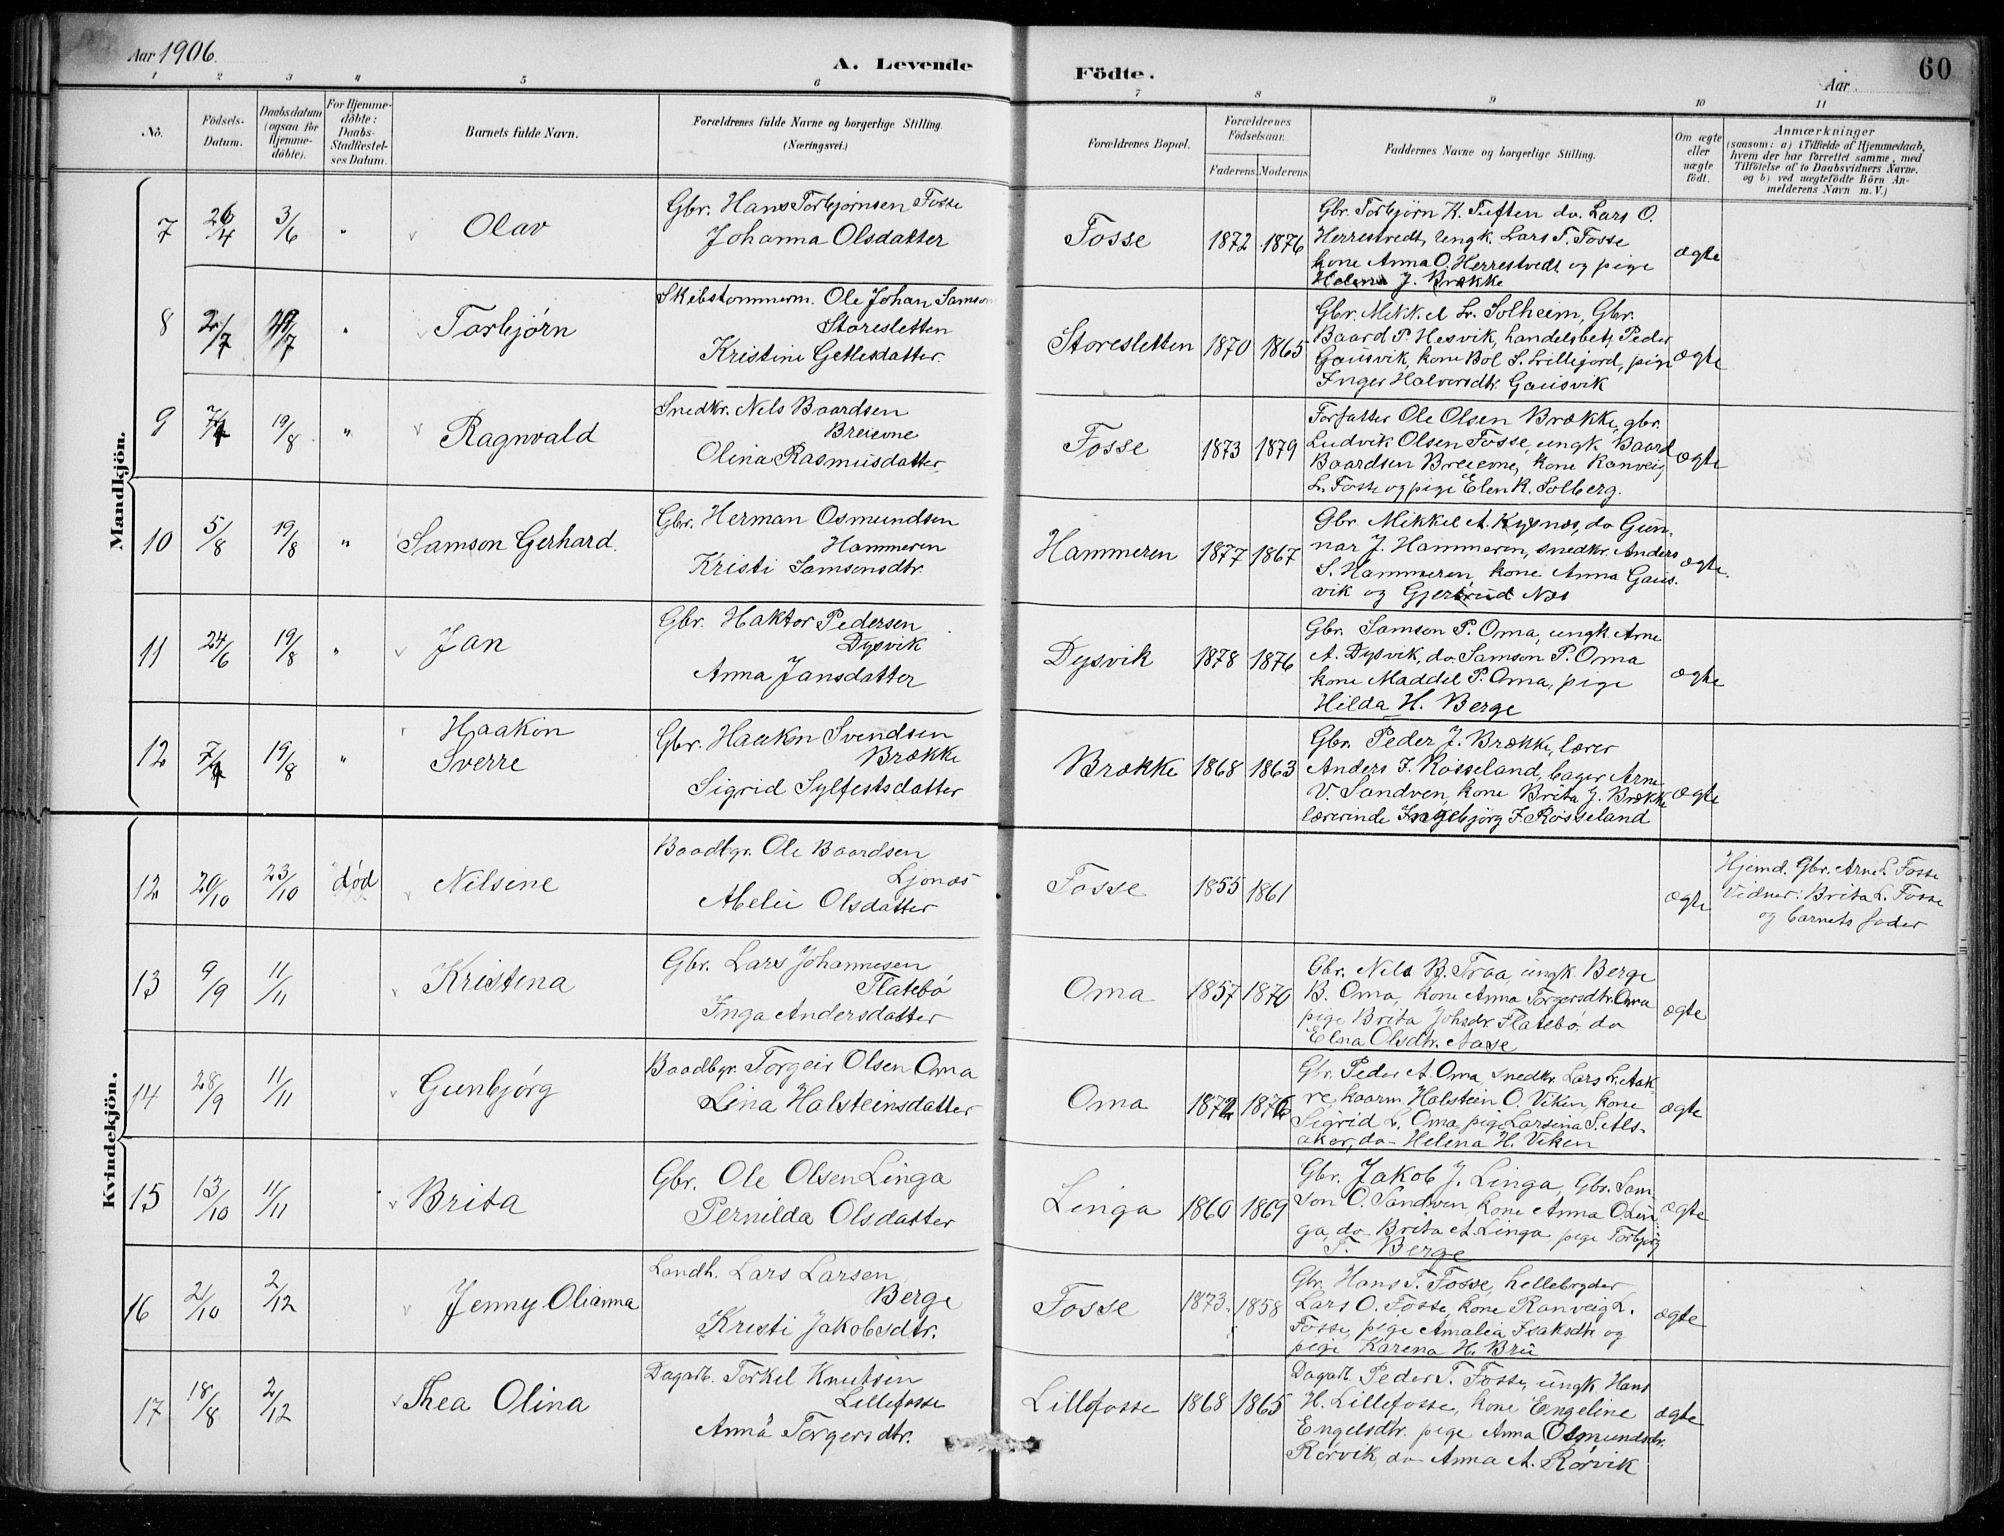 Aar 1906.
A. Levende Födte.
Aar
60
1 2 3 4 5 6 7 8 9 10 11
No.
Födsels-Datum.
Daabsdatum (ogsaa for Hjemme-döbte).
For Hjemme-döbte: Daabs-Stadfæstel-ses Datum.
Barnets fulde Navn.
Forældrenes fulde Navne og borgerlige Stilling. (Næringsvei.)
Forældrenes Bopæl.
Forældrenes Födselsaar.
Faderens. Moderens.
Faddernes Navne og borgerlige Stilling.
Om ægte eller uægte födt.
Anmærkninger
(saasom: a) i Tilfælde af Hjemmedaab,
hvem der har forrettet samme, med
Tilföielse af to Daabsvidners Navne.
og b) ved uægtefödte Börn An-
melderens Navn m. V.)
Mandkjön.
7 26/4 3/6 " Olav
Gbr. Hans Torbjørnsen Fosse
Johanna Olsdatter
Fosse 1872 1876
Gbr. Torbjørn K. Tuften do. Lars O.
Herrestvedt, ungk. Lars T. Fosse
kone Anna O. Herrestvedt og pige
Helena J. Brække
ægte
8 2/7 /7 " Torbjørn
Skibstømmerm. Ole Johan Samson
Storesletten
Kristine Getlesdatter
Storesletten 1870 1865
Gbr. Mikkel L. Solheim, Gbr.
Baard P. Hesvik, handelsbetj. Peder
Gausvik, kone Bol S. Lillefjord, pige
Inger Halversdtr. Gausvik
ægte
9 7/ 19/8 " Ragnvald
Snedkr. Nils Baardsen
Breievne
Olina Rasmusdatter
Fosse 1873 1879
Forfatter Ole Olsen Brække, gbr.
Ludvik Olsen Fosse, ungk. Baard
Baardsen Breievne, kone Ranveig
L. Fosse og pige Elen K. Solberg.
ægte
10 5/8 19/8 " Samson Gerhard.
Gbr. Herman Osmundsen
Hammeren
Kristi Samsonsdtr.
Hammeren 1877 1867
Gbr. Mikkel A. Kysnæs, do Gun-
nar J. Hammeren, snedkr. Anders
S. Hammeren, kone Anna Gaus-
vik og Gjertrud Næs
ægte.
11 24/6 19/8 " Jan
Gbr. Haktor Pedersen
Dysvik
Anna Jansdatter
Dysvik 1878 1876
Gbr. Samson P. Oma, ungk. Arne
A. Dysvik, do Samson P. Oma
kone Maddel P. Oma, pige
Hilda H. Berge
ægte
12 7/ 19/8 " Haakon
Sverre
Gbr. Haakon Svendsen
Brække
Sigrid Sylfestsdatter
Brække 1868 1863
Gbr. Peder J. Brække, lærer
Anders F. Røsseland, bager Arne
V. Sandven, kone Brita J. Brække
lærerinde Ingebjørg F. Røsseland
ægte
Kvindekjön.
12 20/10 23/10 død Nilsine
Baadbgr. Ole Baardsen
Ljonæs
Abelu Olsdatter
Fosse 1855 1861
ægte
Hjemd. Gbr. Arne L. Fosse
Vidner: Brita L. Fosse
og barnets fader
13 9/9 11/11 Kristina
Gbr. Lars Johannesen
Flatebø
Inga Andersdatter
Oma 1857 1870
Gbr. Nils B. Traa, ungk. Berge
B. Oma, kone Anna Torgersdtr. Oma
pige Brita Johsdr. Flatebø, do
Elna Olsdtr. Aase
ægte
14 28/9 11/11 Gunbjørg
Baadbgr. Torgeir Olsen Oma
Lina Halsteinsdatter
Oma 1872 1876
Gbr. Peder A. Oma, snedkr. Lars L. Aak-
re, kaarm. Halstein O. Viken, kone
Sigrid L. Oma pige Larsina S. Als-
aker, do- Helena H. Viken
ægte
15 13/10 11/11 Brita
Gbr. Ole Olsen Linga
Pernilda Olsdatter
Linga 1860 1869
Gbr. Jakob J. Linga, Gbr. Sam-
son O. Sandven, kone Anna O. Lin-
ga, do Brita A. Linga, pige Torbjørg
T. Berge
ægte
16 2/10 2/12 Jenny Olianna
Landh. Lars Larsen
Berge
Kristi Jakobsdtr.
Fosse 1873. 1858
Gbr. Hans T. Fosse, hellebryder
Lars O. Fosse, kone Ranveig L.
Fosse, pige Amalia Isaksdtr og
pige Karena H. Bru
ægte
17 18/8 2/12 Thea Olina
Dagarb. Torkel Knutsen
Lillefosse
Anna Torgersdtr.
Lillefosse 1868 1865
Dagarb. Peder T. Fosse, ungk. Hans
H. Lillefosse, kone Engeline
Engelsdtr. pige Anna Osmundsdr.
Rørvik, do Anna A. Rørvik
ægte